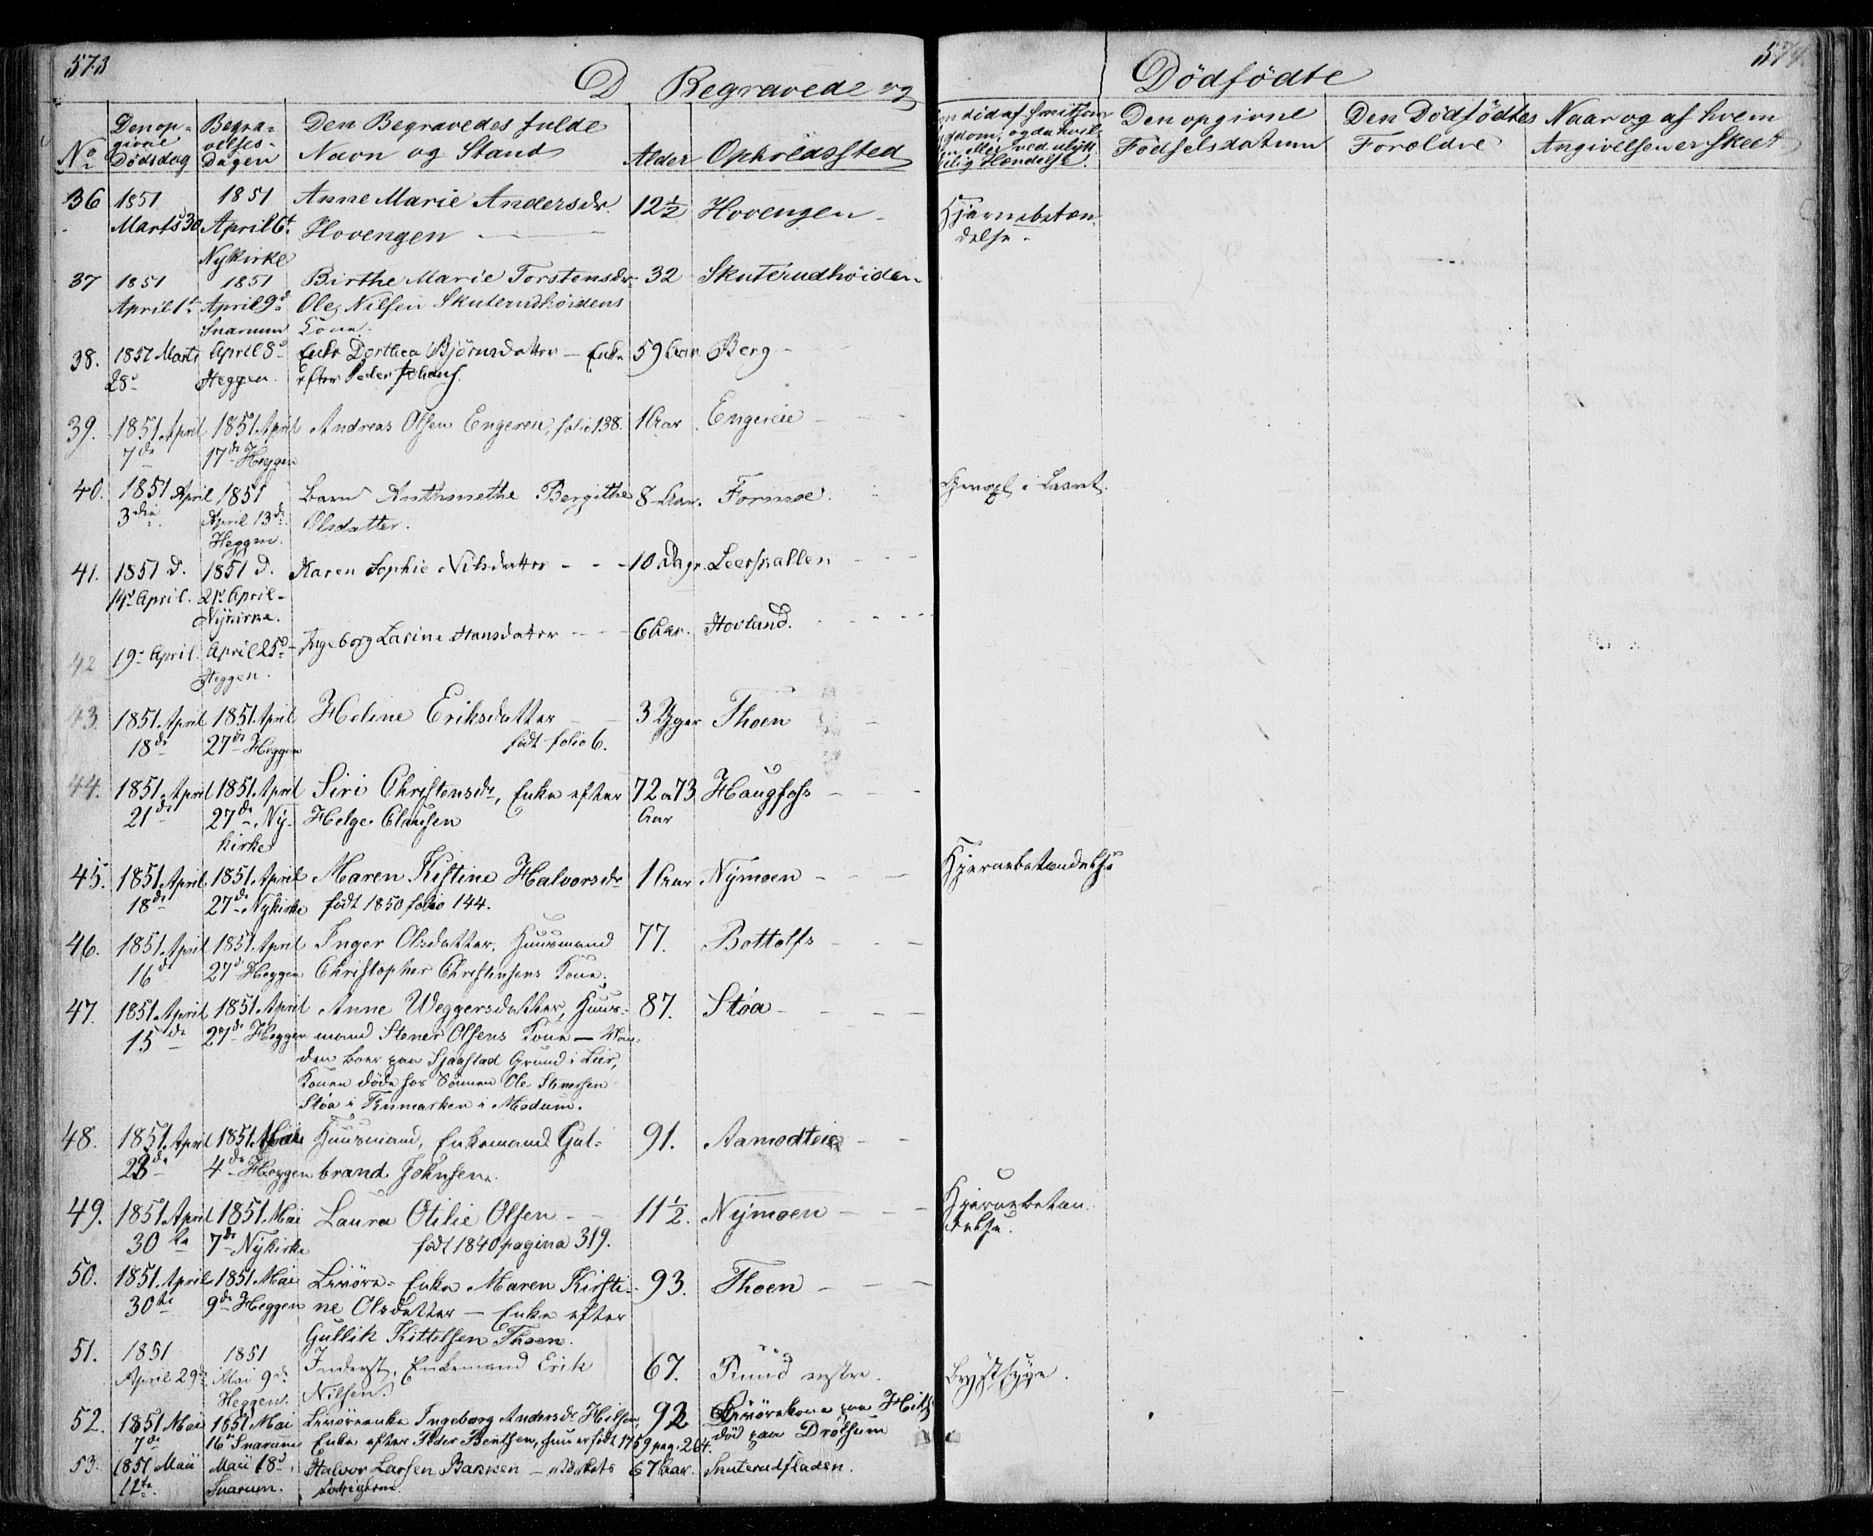 573
574
D Begravede og Dödfödte
No
Den op-
givne
Dödsdag
Begra-
velses-
Dagen
Den Begravedes fulde
Navn og Stand
Alder
Opholdssted
Den opgivne
Fødselsdatum
Den Dödfödtes
Foreldre
Naar og af hvem
Angivelsen er skeet
36 1851 1851 Anne Marie Andersdr. 12½ Hovengen
Marts 30 April 6t Hovengen
Nykirke
Hjernebetæn-
delse
37 1851 1851 Birthe Marie Torstensdr 32 Skuterudhöiden
April 1t April 9d Ole Nilsen Skuterudhöidens
Snarum Kone.
38. 1851 Marts April 8d Enke Dorthea Björnsdatter - Enke 59 Aar Berg
28d Heggen. efter Peder
39. 1851 April 1851 April Andreas Olsen Engereie, folio 138. 1 Aar Engereie
7de 17de Heggen
40. 1851 April 1851 Barn Anthonethe Bergithe 8 Aar. Formoe.
3die April 13de Olsdatter.
Heggen.
41. 1851 d. 1851 d. Karen Sophie Nilsdatter - - - 10 Dage. Leerskallen
14d April. 21d April
Nykirke.
42 19d April. April 25d Ingeborg Larine Hansdatter - - - 6 Aar. Hovland.
Heggen.
43. 1851 April 1851 April Heline Eriksdatter 3 Uger Thoen
18de 27de Heggen födt folio 6.
44. 1851 April 1851 April Siri Christensdr, Enke efter 72 a 73 Haugfoss
21de 27de Ny- Helge Clausen Aar
kirke
45. 1851 April 1851 April Maren Kistine Halvorsdr 1 Aar Nymoen
18de 27de Nykirke födt 1850 folio 144.
Hjernebetændelse
46. 1851 April 1851 April Inger Olsdatter, Huusmand 77. Bottolfs
16d 27d Heggen Christopher Christensens Kone.
47. 1851 April 1851 April Anne Weggersdatter, Huus- 87. Stöa
15de 27de Heggen mand Stener Olsens Kone - Man-
den boer paa Sjaastad Grund i Lier,
Konen döde hos Sönnen Ole Stenersen
Stöa i Finmarken i Modum.
48. 1851 April 1851 Mai Huusmand, Enkemand Gul- 91. Aamodteie
4de Heggen brand Johnsen.
49. 1851 April 1851 Mai Laura Otilie Olsen 11½. Nymoen
30te 7de Nykirke födt 1840 pagina 319.
Hjernebetæn-
delse.
50. 1851 April 1851 Mai Livöre-Enke Maren Kirsti- 93. Thoen
30te 9de Heggen ne Olsdatter - Enke efter
Gullik Kittelsen Thoen.
51. 1851 1851 Inderst, Enkemand Erik 67. Ruud vestre.
April 29de Mai 9de Nilsen.
Heggen.
Brystsyge.
52. 1851 Mai 1851 Mai Livöreenke Ingeborg Andersdr 92 Livörekone paa
7de 16de Snarum Enke efter Peder Bentsen, hun er födt 1759 pag. 264. död paa Drolsum
53. 1851 Maii Maii 18d Halvor Larsen Bakken 67 Aar. Skuterudfladen.
12te Snarum.